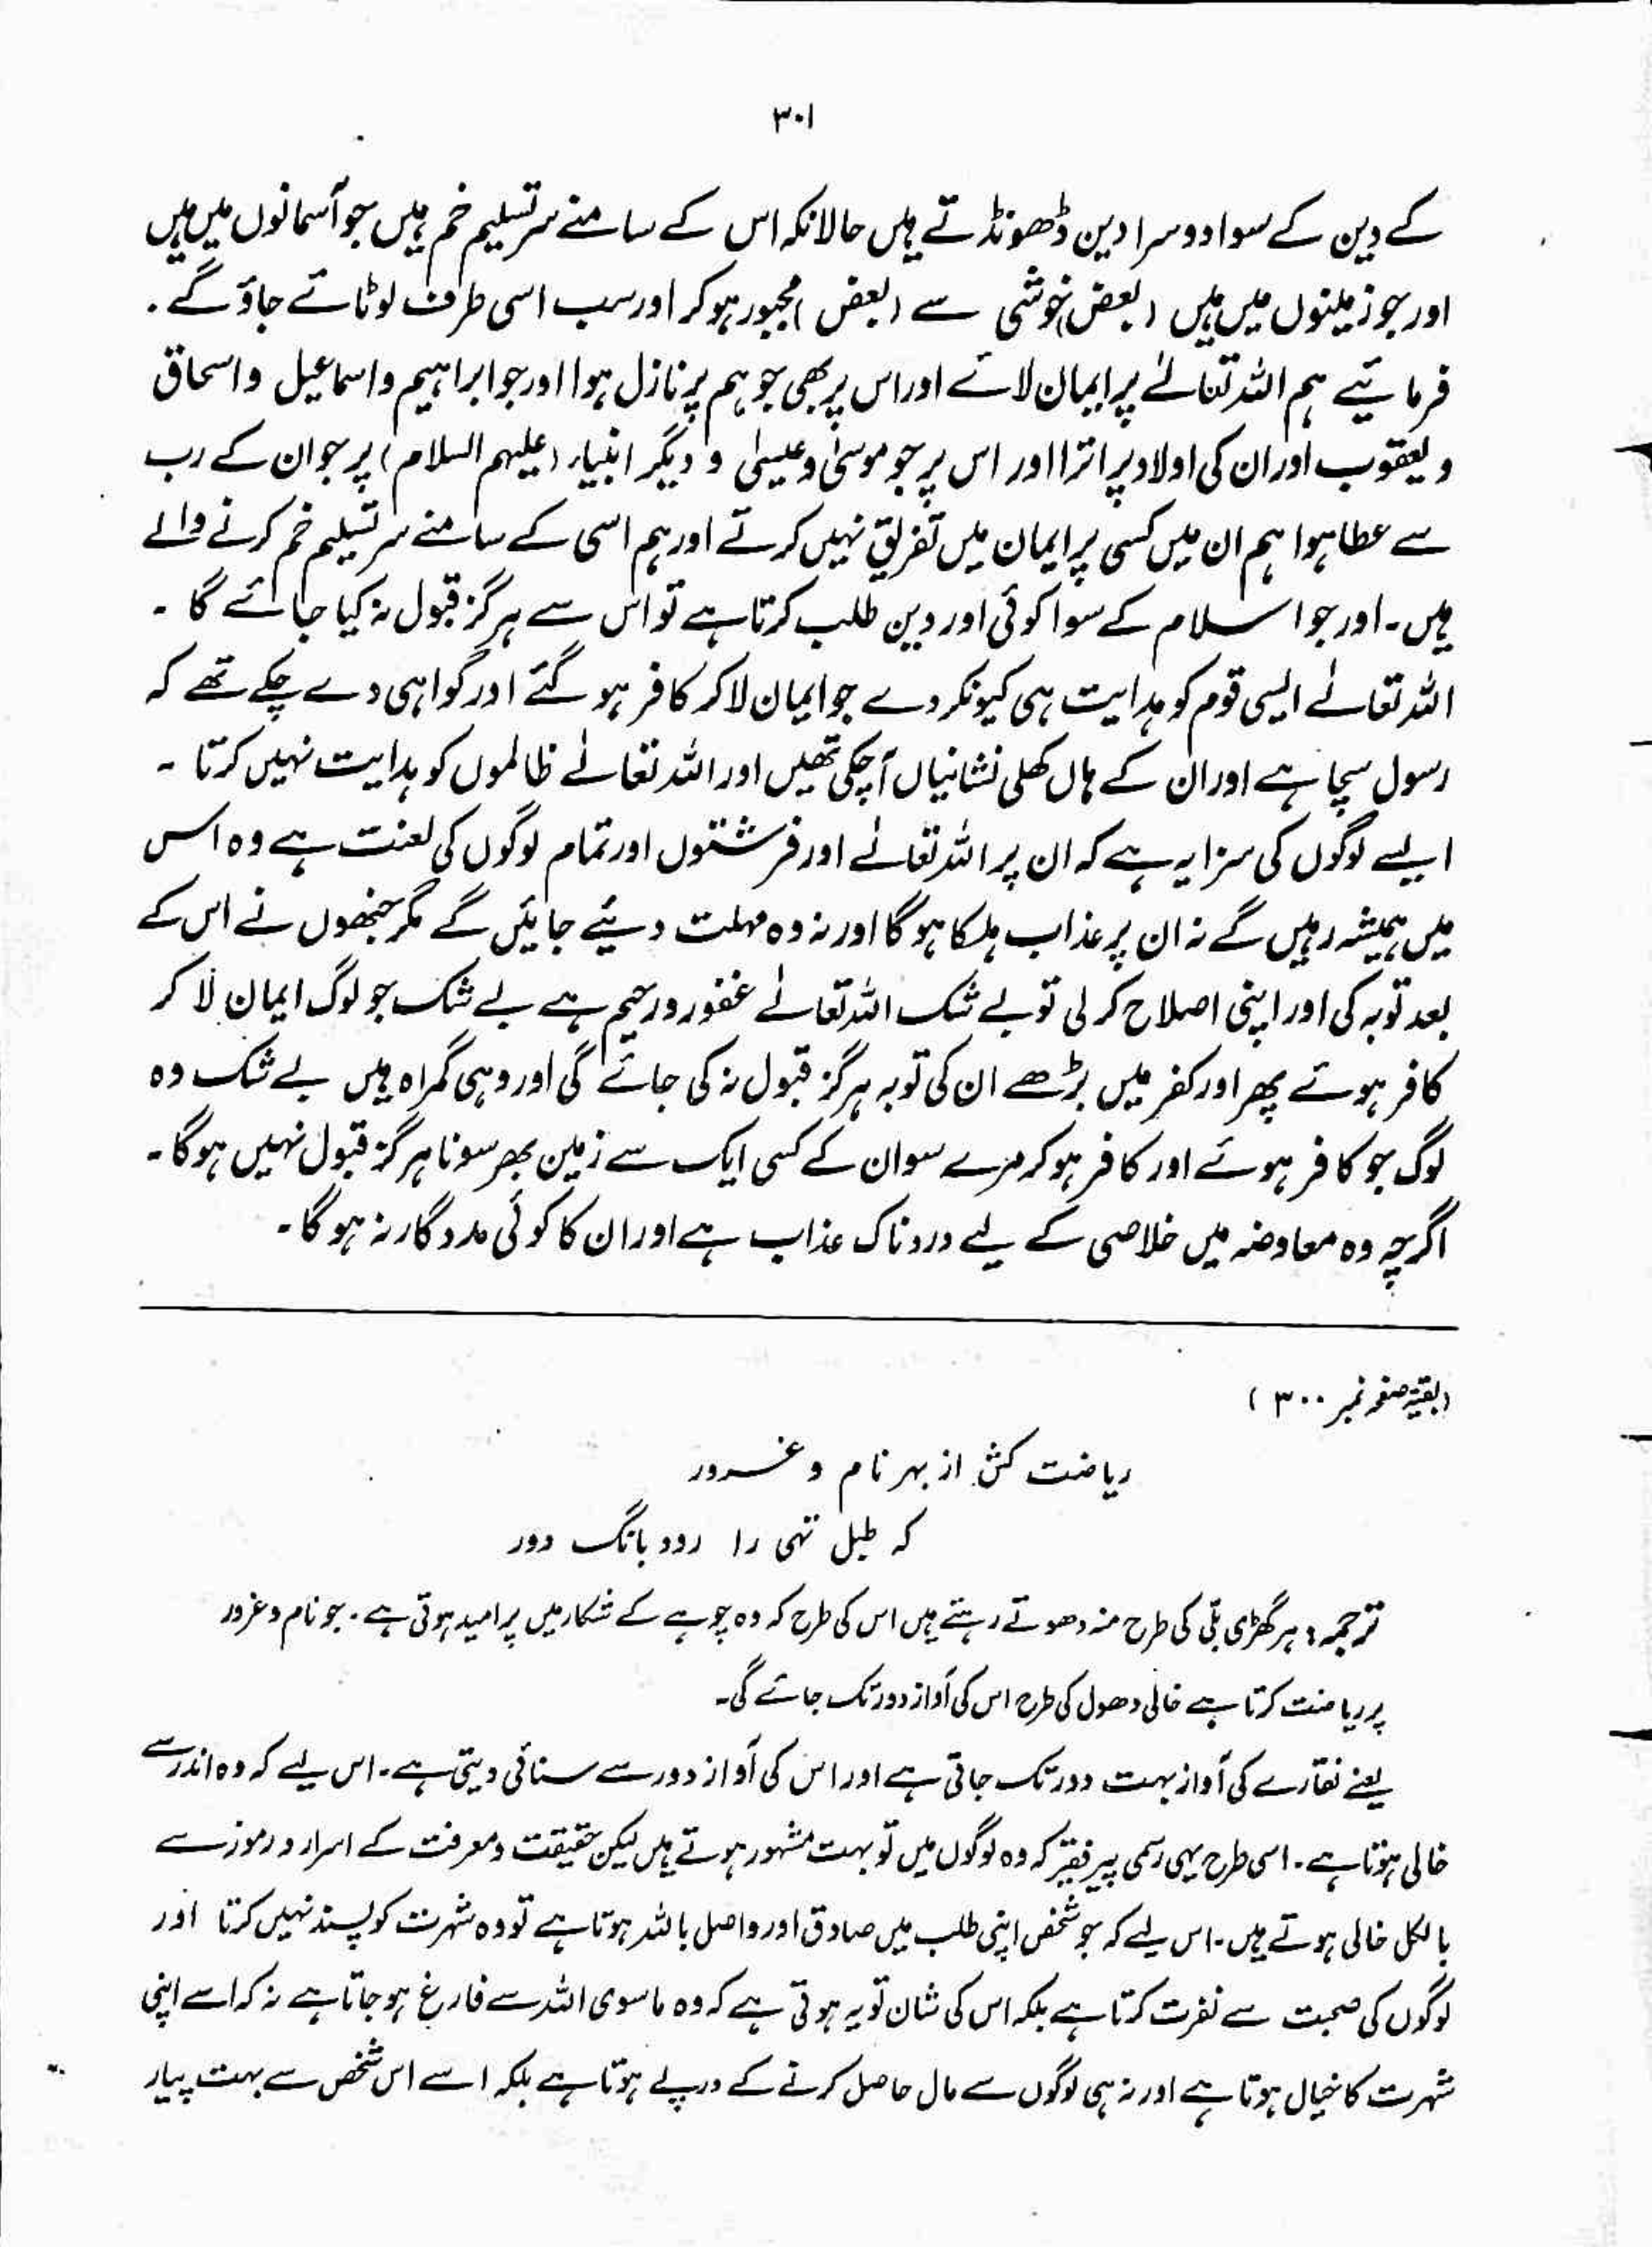 ۳۰۱
کے دین کے سوا دوسرا دین ڈھونڈتے ہیں حالانکہ اس کے سامنے سر تسلیم خم ہیں جو آسمانوں میں ہیں
اور جو زمینوں میں ہیں (بعض) خوشی سے (بعض) مجبور ہو کر اور سب اسی طرف لوٹائے جاؤ گے۔
فرمائیے ہم اللہ تعالےٰ پر ایمان لائے اور اس پر بھی جو ہم پر نازل ہوا اور جو ابراہیم و اسماعیل و اسحاق
و یعقوب اور ان کی اولاد پر اترا اور اس پر جو موسیٰ و عیسیٰ و دیگر انبیاء (علیہم السلام) پر جو ان کے رب
سے عطا ہوا ہم ان میں کسی پر ایمان میں تفریق نہیں کرتے اور ہم اسی کے سامنے سر تسلیم خم کرنے والے
ہیں۔ اور جو اسلام کے سوا کوئی اور دین طلب کرتا ہے تو اس سے ہرگز قبول نہ کیا جائے گا ۔
اللہ تعالےٰ ایسی قوم کو ہدایت ہی کیونکر دے جو ایمان لا کر کافر ہو گئے اور گواہی دے چکے تھے کہ
رسول سچا ہے اور ان کے ہاں کھلی نشانیاں آ چکی تھیں اور اللہ تعالےٰ ظالموں کو ہدایت نہیں کرتا ۔
ایسے لوگوں کی سزا یہ ہے کہ ان پر اللہ تعالےٰ اور فرشتوں اور تمام لوگوں کی لعنت ہے وہ اس
میں ہمیشہ رہیں گے نہ ان پر عذاب ہلکا ہو گا اور نہ وہ مہلت دیئے جائیں گے مگر جنھوں نے اس کے
بعد توبہ کی اور اپنی اصلاح کر لی تو بے شک اللہ تعالےٰ غفور و رحیم ہے بے شک جو لوگ ایمان لا کر
کافر ہوئے پھر اور کفر میں بڑھے ان کی توبہ ہرگز قبول نہ کی جائے گی اور وہی گمراہ ہیں بے شک وہ
لوگ جو کافر ہوئے اور کافر ہو کر مرے سو ان کے کسی ایک سے زمین بھر سونا ہرگز قبول نہیں ہو گا۔
اگرچہ وہ معاوضہ میں خلاصی کے لیے دردناک عذاب ہے اور ان کا کوئی مددگار نہ ہو گا۔
(بقیہ صفحہ نمبر ۳۰۰)
ریاضت کش از بہر نام و غرور
کہ طبل تہی را رود بانگ دور
ترجمہ: ہر گھڑی بلّی کی طرح منہ دھوتے رہتے ہیں اس کی طرح کہ وہ چوہے کے شکار میں پر امید ہوتی ہے۔ جو نام و غرور
پر ریاضت کرتا ہے خالی دھول کی طرح اس کی آواز دور تک جائے گی۔
یعنے نقارے کی آواز بہت دور تک جاتی ہے اور اس کی آواز دور سے سنائی دیتی ہے۔ اس لیے کہ وہ اندر سے
خالی ہوتا ہے۔ اسی طرح یہی رسمی پیر فقیر کہ وہ لوگوں میں تو بہت مشہور ہوتے ہیں لیکن حقیقت و معرفت کے اسرار و رموز سے
بالکل خالی ہوتے ہیں۔ اس لیے کہ جو شخص اپنی طلب میں صادق اور واصل باللہ ہوتا ہے تو وہ شہرت کو پسند نہیں کرتا اور
لوگوں کی صحبت سے نفرت کرتا ہے بلکہ اس کی شان تو یہ ہوتی ہے کہ وہ ماسوی اللہ سے فارغ ہو جاتا ہے نہ کہ اسے اپنی
شہرت کا خیال ہوتا ہے اور نہ ہی لوگوں سے مال حاصل کرنے کے درپے ہوتا ہے بلکہ اسے اس شخص سے بہت پیار